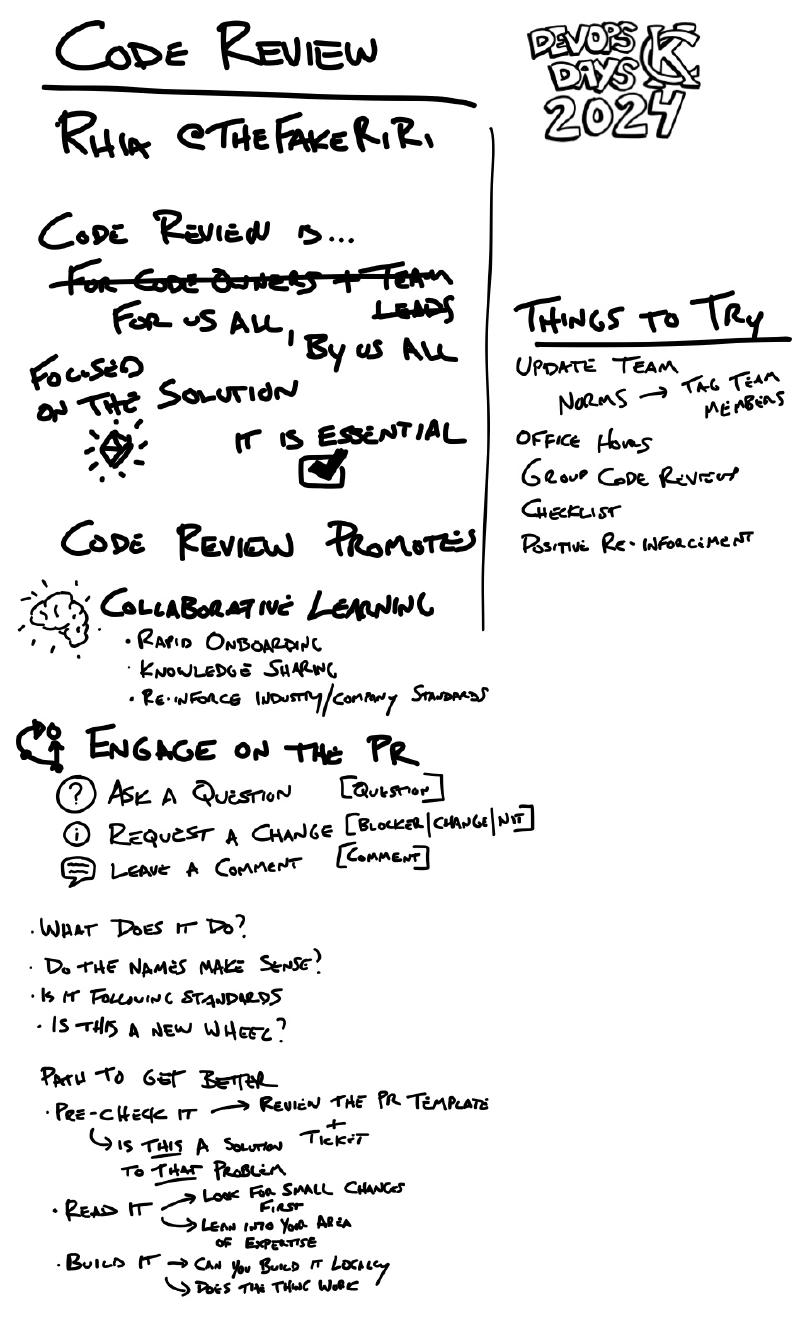 CODE REVIEW
DEVOPS
DAYS KC
2024
RHIA @THEFAKERIRI
CODE REVIEW IS...
FOR CODE OWNERS + TEAM
LEADS
FOR US ALL,
BY US ALL
FOCUSED
ON THE SOLUTION
IT IS ESSENTIAL
CODE REVIEW PROMOTES
COLLABORATIVE LEARNING
• RAPID ONBOARDING
• KNOWLEDGE SHARING
• RE-INFORCE INDUSTRY/COMPANY STANDARDS
ENGAGE ON THE PR
? ASK A QUESTION [QUESTION]
i REQUEST A CHANGE [BLOCKER|CHANGE|NIT]
LEAVE A COMMENT [COMMENT]
• WHAT DOES IT DO?
• DO THE NAMES MAKE SENSE?
• IS IT FOLLOWING STANDARDS
• IS THIS A NEW WHEEL?
PATH TO GET BETTER
• PRE-CHECK IT → REVIEW THE PR TEMPLATE
+
TICKET
↳ IS THIS A SOLUTION
TO THAT PROBLEM
• READ IT → LOOK FOR SMALL CHANGES
FIRST
↳ LEAN INTO YOUR AREA
OF EXPERTISE
• BUILD IT → CAN YOU BUILD IT LOCALLY
↳ DOES THE THING WORK
THINGS TO TRY
UPDATE TEAM
NORMS → TAG TEAM
MEMBERS
OFFICE HOURS
GROUP CODE REVIEW
CHECKLIST
POSITIVE RE-INFORCEMENT